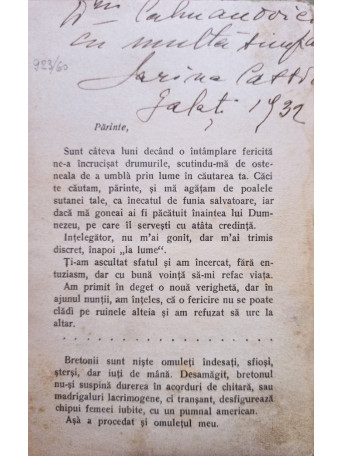 Dnei Calmanovici
cu multă simpa
Sarina Cassv
Galați 1932
923/60
Părinte,
Sunt câteva luni decând o întâmplare fericită
ne-a încrucișat drumurile, scutindu-mă de oste-
neala de a umblà prin lume în căutarea ta. Căci
te căutam, părinte, și mă agățam de poalele
sutanei tale, ca înecatul de funia salvatoare, iar
dacă mă goneai ai fi păcătuit înaintea lui Dum-
nezeu, pe care îl servești cu atâta credință.
Ințelegător, nu m'ai gonit, dar m'ai trimis
discret, înapoi „la lume".
Ți-am ascultat sfatul și am încercat, fără en-
tuziasm, dar cu bună voință să-mi refac viața.
Am primit în deget o nouă verighetă, dar în
ajumul nunții, am înțeles, că o fericire nu se poate
clădì pe ruinele alteia și am refuzat să urc la
altar.
. . . . . . . . . . . . . . . . . . . .
Bretonii sunt niște omuleți îndesați, sfioși,
șterși, dar iuți de mână. Desamăgit, bretonul
nu-și suspină durerea în acorduri de chitară, sau
madrigaluri lacrimogene, ci tranșant, desfigurează
chipui femeei iubite, cu un pumnal american.
Așà a procedat și omulețul meu.